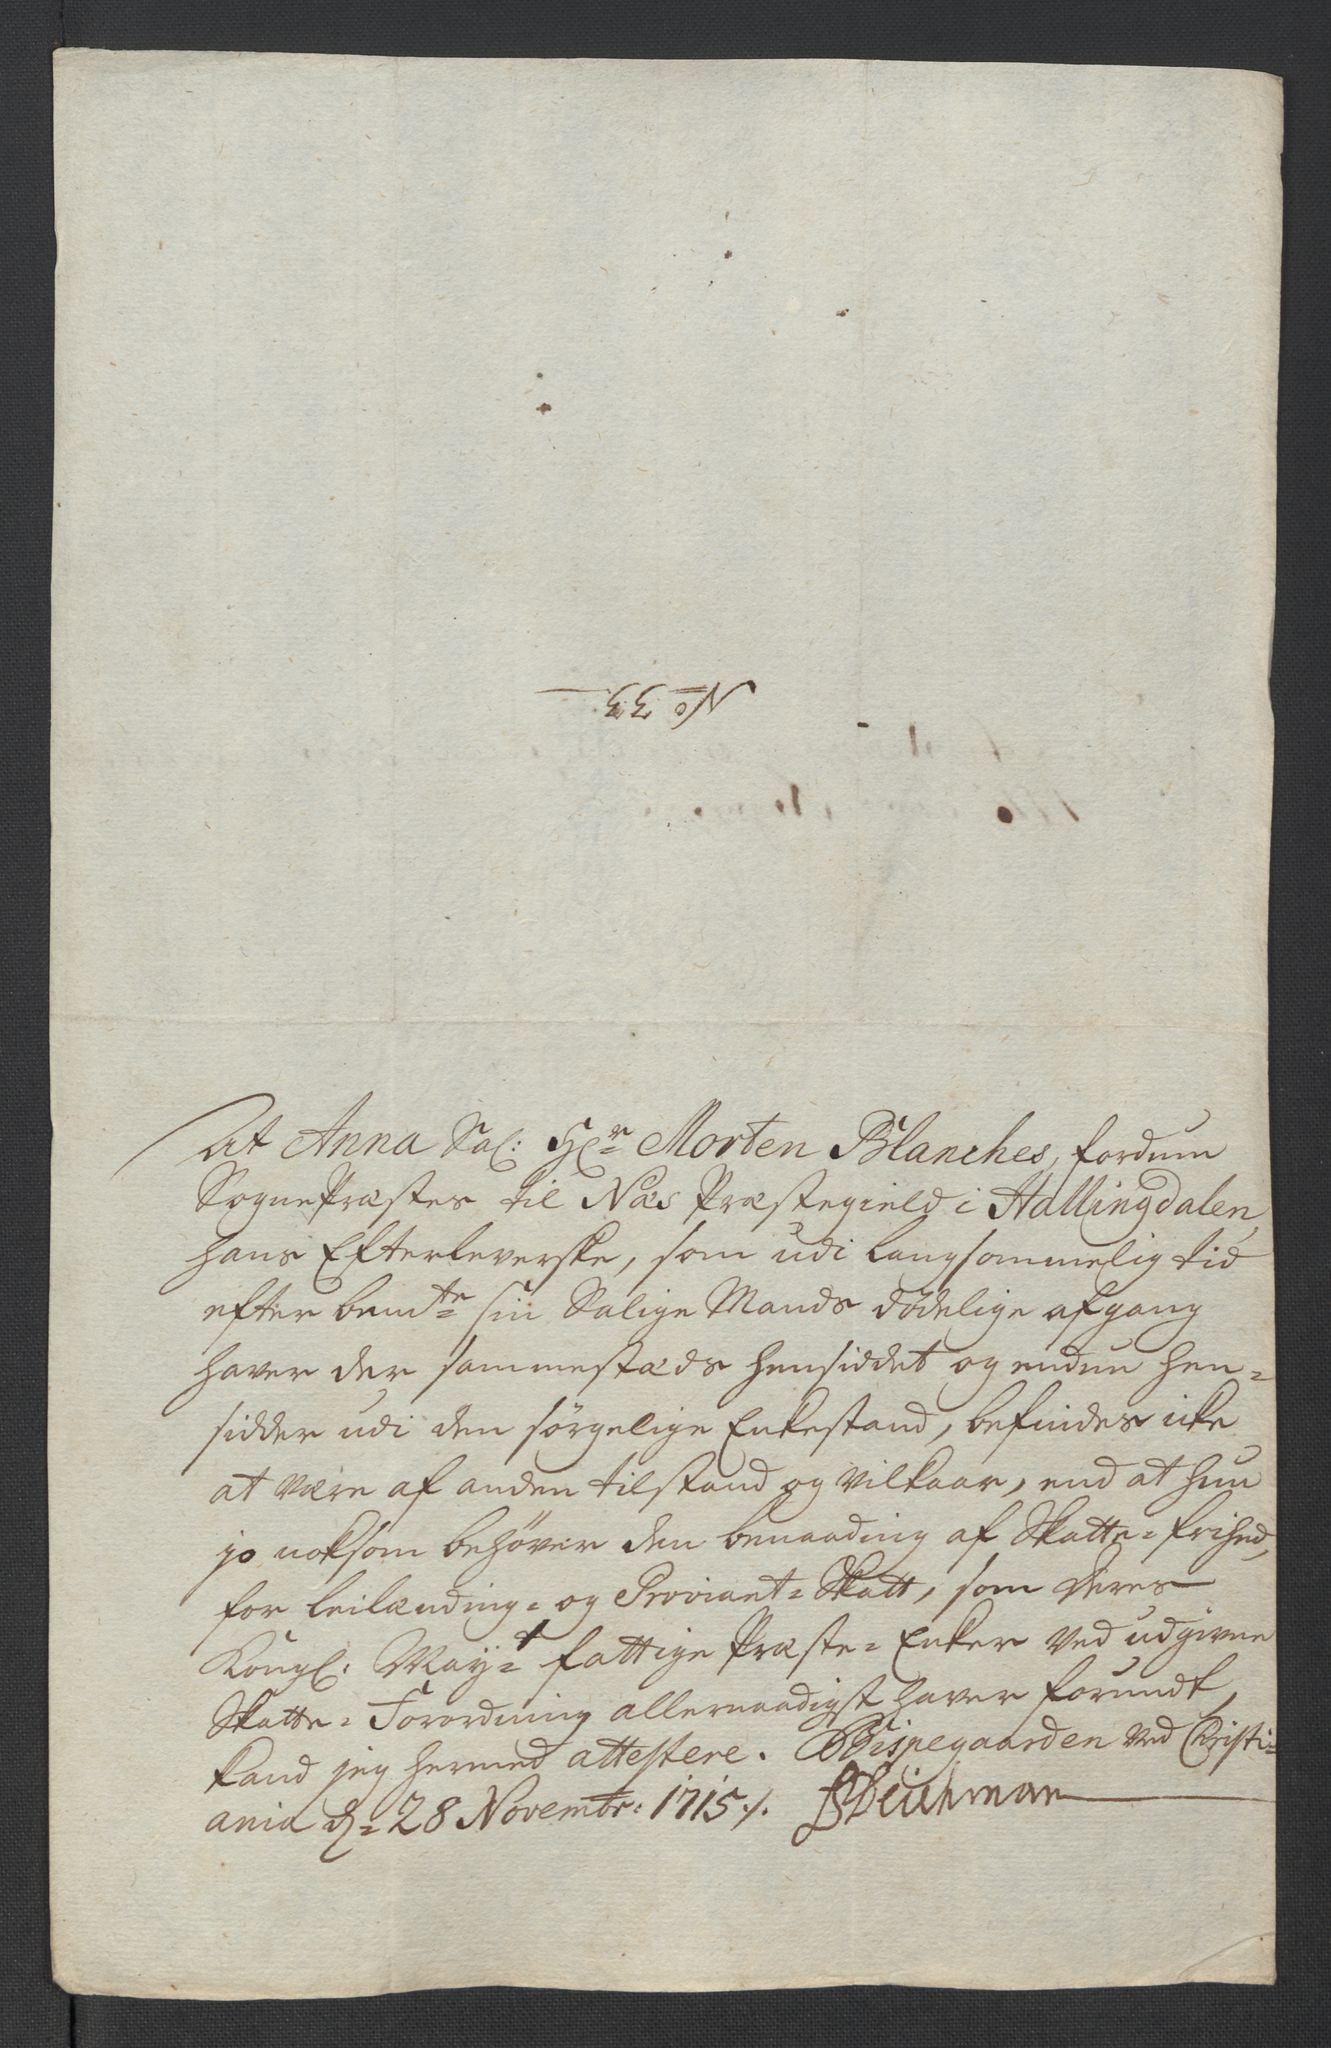 No 33
At Anna Sal: Hr Morten Blanches, fordum
SognePræstes til Næs Præstegield i Hallingdalen,
hans Efterleverske, som udi langsommelig tid
efter bemte sin Salige Mands dødelige afgang
haver der sammestæds hensiddet og endnu hen=
sidder udi den sørgelige Enkestand, befindes icke
at være af anden tilstand og vilkaar, end at hun
jo noksom behøver den benaading af Skatte=frihed,
for leilænding= og Proviant=Skatt, som Deres
Kongl: Mayt fattige Præste=Enker ved udgivne
Skatte=Forordning allernaadigst haver forundt,
kand jeg hermed attestere. Bispegaarden ved Christi=
ania d. 28 Novembr: 1715 ./. B Deichman